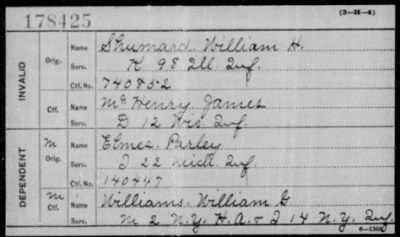 178425
(3-H-4)
INVALID
Orig.
Name Shumard, William H.
Serv. K 98 Ill. Inf.
Ctf. No. 740852
Ctf.
Name McHenry, James
Serv. D 12 Wis. Inf.
DEPENDENT
M
Orig.
Name Elmes, Perley
Serv. I 22 Mich. Inf.
Ctf. No. 140447
M
Ctf.
Name Williams, William G
Serv. M 2 N.Y. H.A. & I 14 N.Y. Inf.